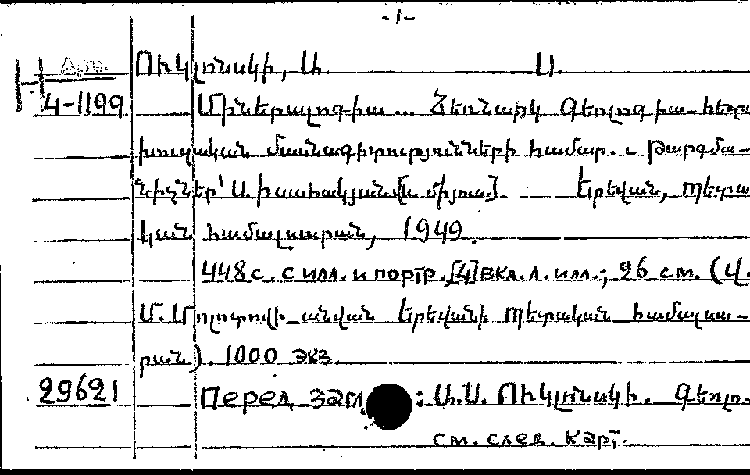 -1-
Арм.
4-1199
Ուկլոնսկի, Ա. Ս.
Միներալոգիա ... Ձեռնարկ գեոլոգիա-հետա
խուզական մասնագիտությունների համար. - Թարգմա-
նիչներ՝ Ա. Իսահակյան [և միյուս]. Երեվան, Պետա
կան համալսարան, 1949.
448 с. с илл. и портр. [4] вкл. л. илл.; 26 см. (Վ.
Մ. Մոլոտովի անվան Երեվանի Պետական համալսա-
րան). 1000 экз.
29621
Перед заг : Ա.Ս. Ուկլոնսկի. Գեոլո-
см. след. карт.